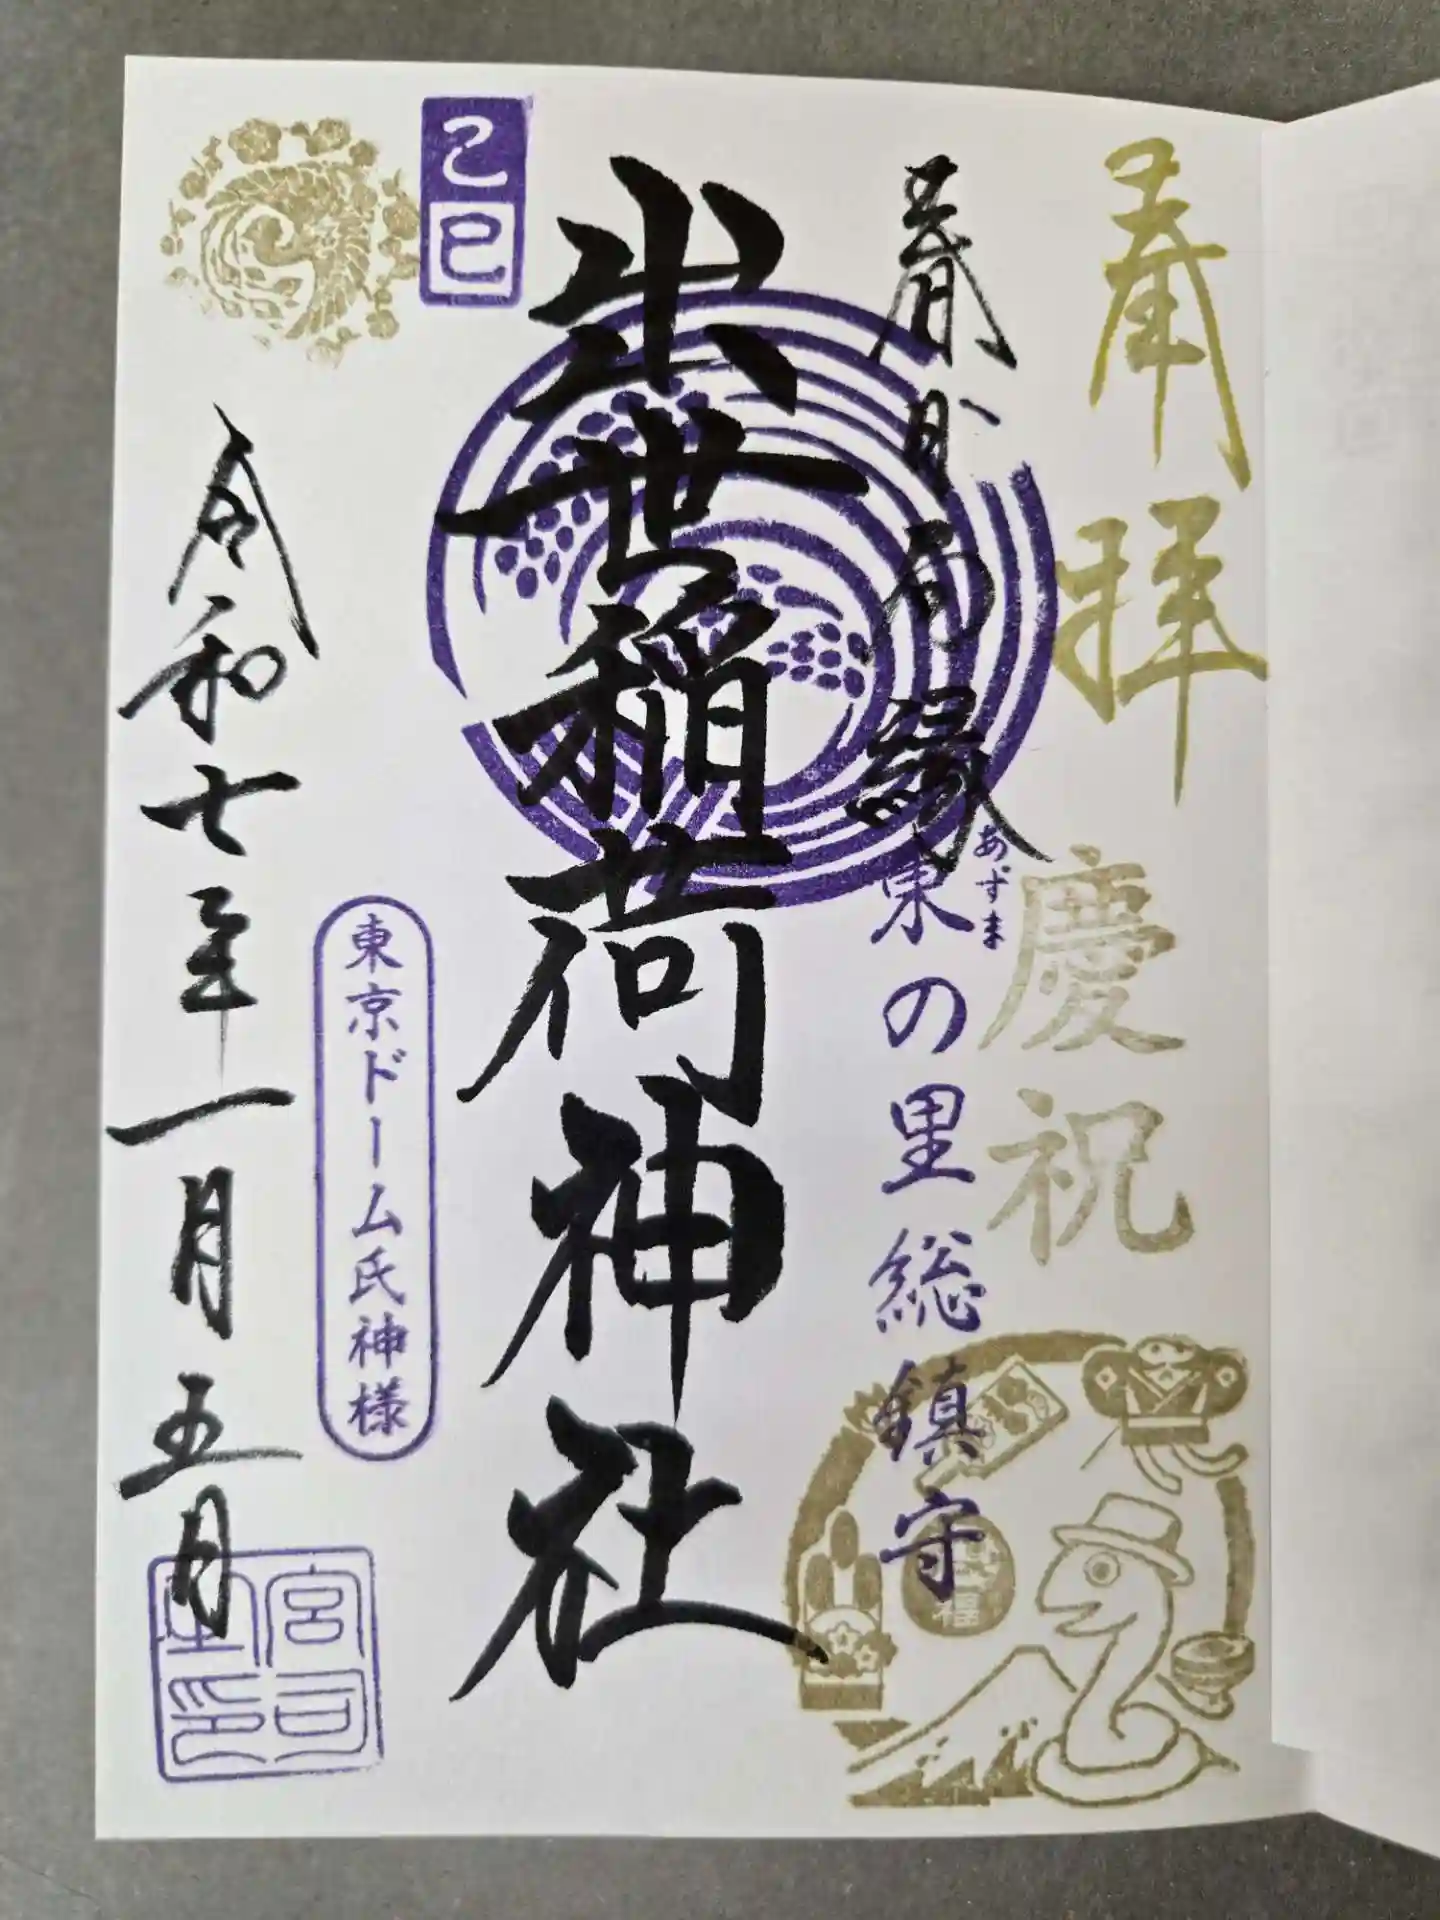 奉拝
慶祝
春日局縁
東の里総鎮守
あずま
出世稲荷神社
己巳
東京ドーム氏神様
令和七年一月五日
宮司
之印
福